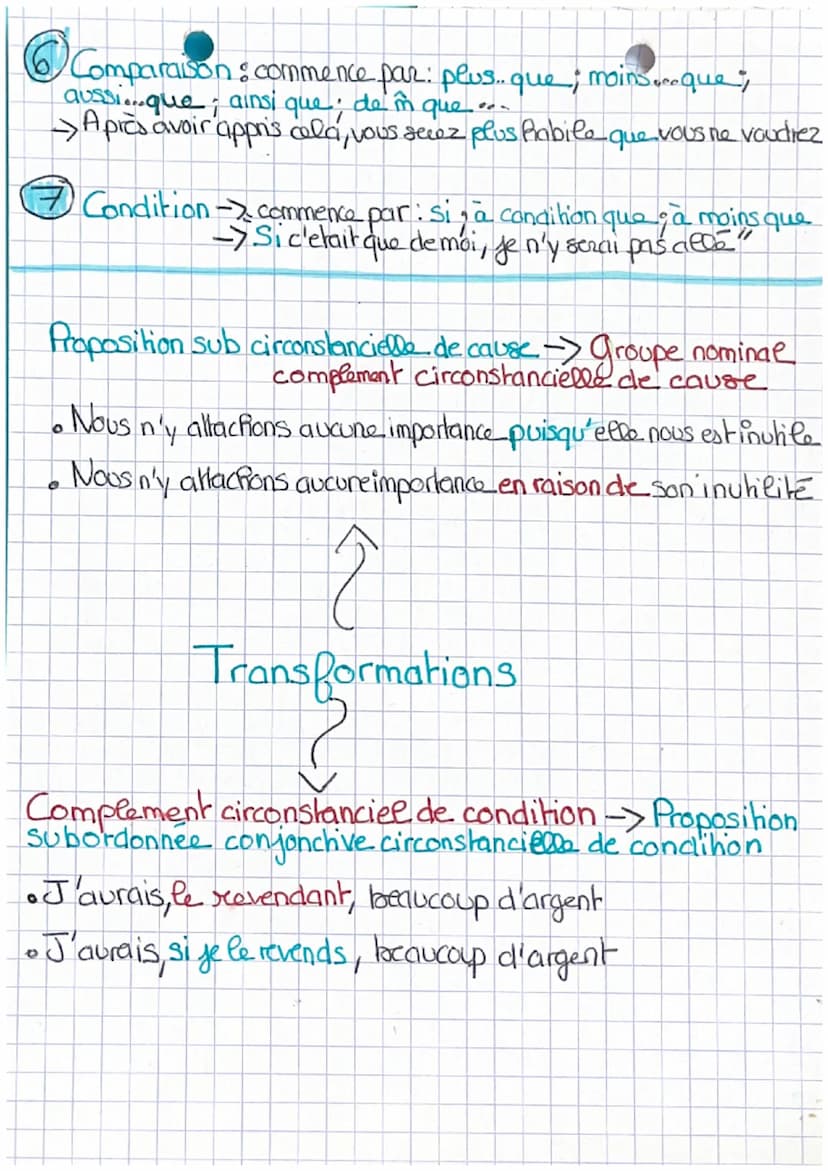 6 Comparaison : commence par : plus..que ; moins...que ;
aussi...que ; ainsi que ; de m̂ que ...
→ Après avoir appris cela, vous serez plus habile que vous ne voudriez
7 Condition → commence par : si ; à condition que ; à moins que
→ Si c'etait que de moi, je n'y serai pas allé"
Proposition sub circonstancielle de cause → Groupe nominal
complement circonstancielle de cause
• Nous n'y attachions aucune importance puisqu'elle nous est inutile
• Nous n'y attachions aucune importance en raison de son inutilité
Transformations
Complement circonstanciel de condition → Proposition
subordonnée conjonctive circonstancielle de condition
• J'aurais, le revendant, beaucoup d'argent
• J'aurais, si je le revends, beaucoup d'argent